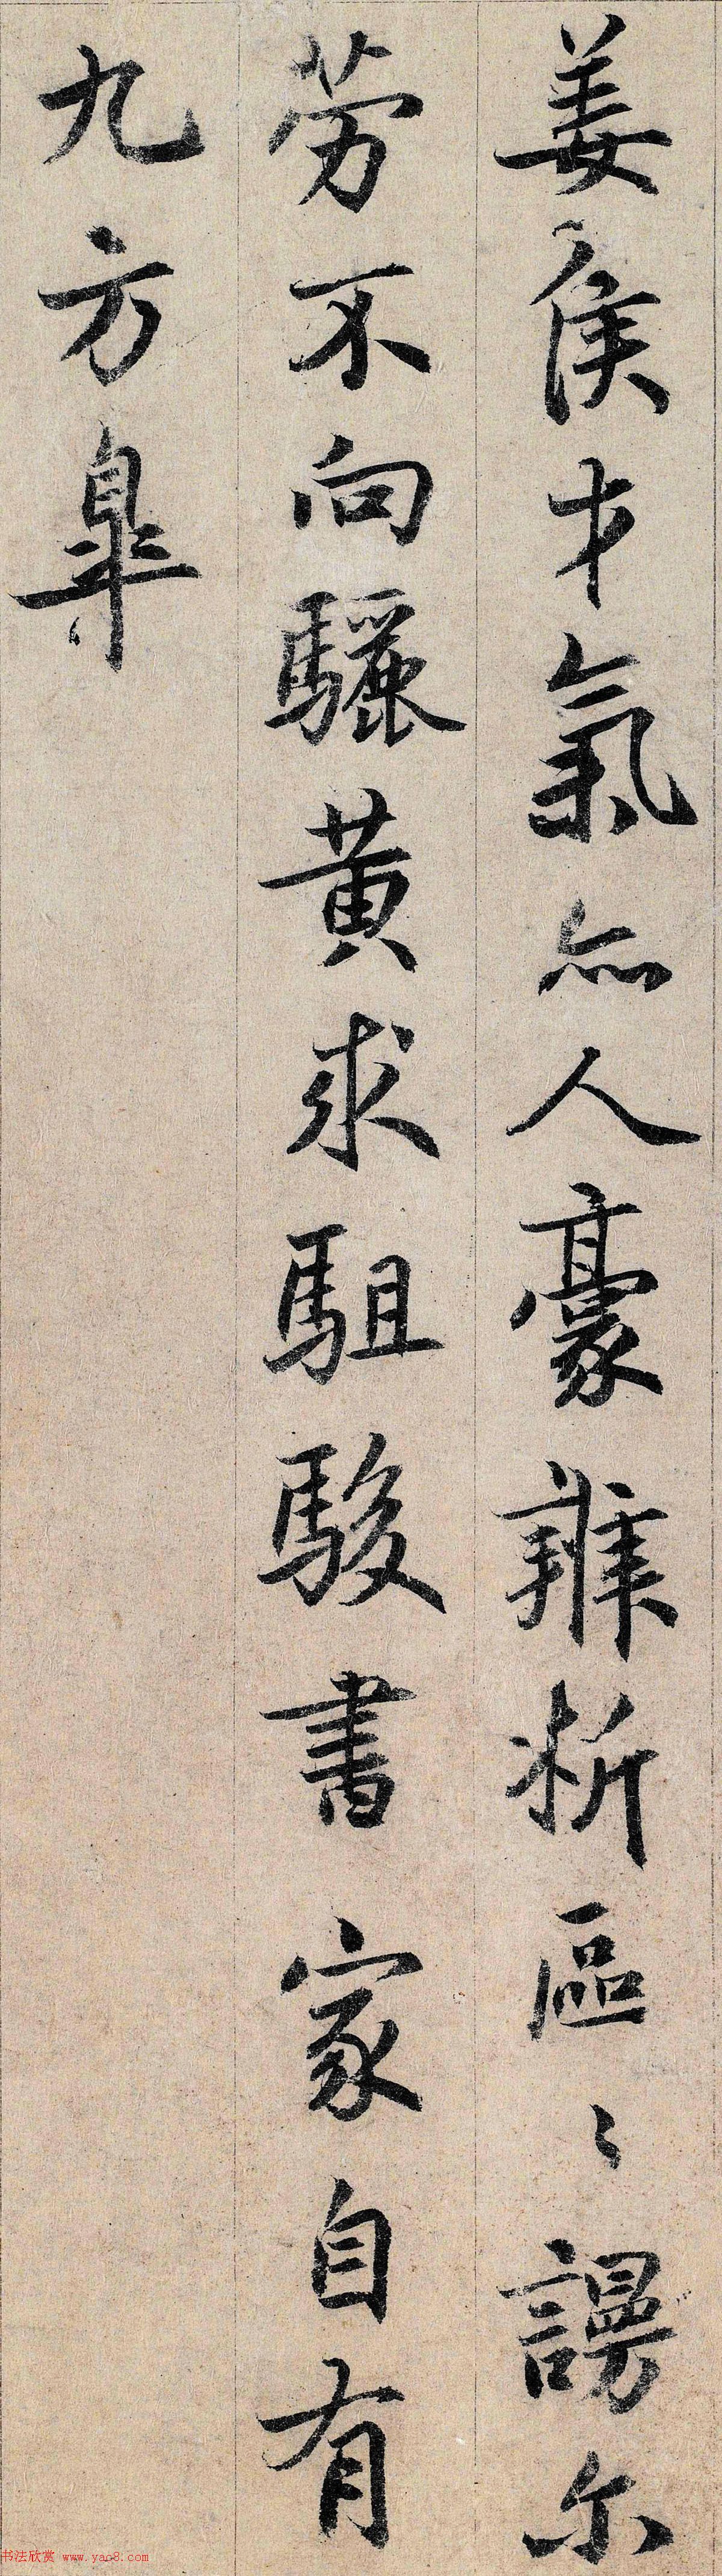 姜侯才氣亦人豪辨析區〻謾尔
劳不向驪黄求駔駿書家自有
九方臯
书法欣赏 www.yac8.com